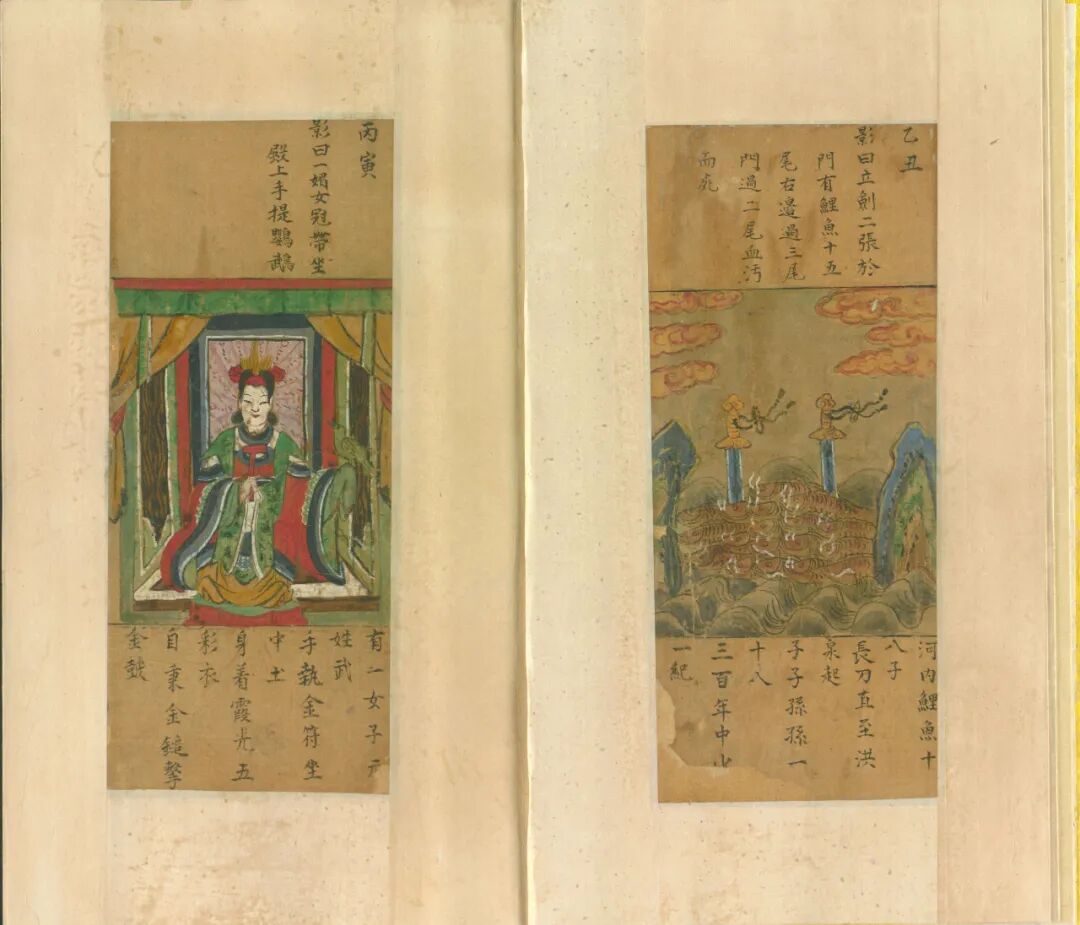 乙丑
影曰立劍二張於
門有鯉魚十五
尾右邊過三尾
門過二尾血污
而死
河内鯉魚十
八子
長刀直至洪
泉起
子子孫孫一
十八
三百年中
一紀
丙寅
影曰一媚女冠帶坐
殿上手提鸚鵡
有二女子
姓武
手執金符坐
中土
身着霞光五
彩衣
自秉金鎚擊
金鼓